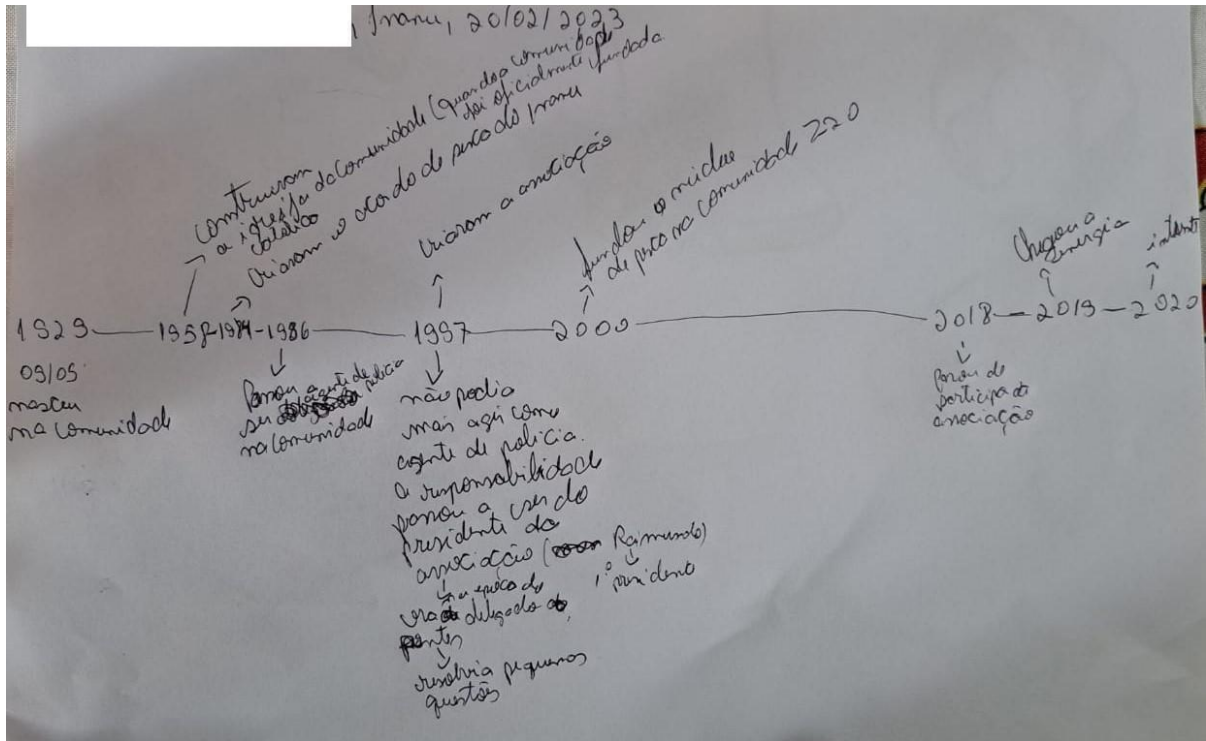 20/02/2023
construiram
a igreja da comunidade (quando a comunidade
católica foi oficialmente fundada
criaram o acordo de pesca do
criaram a associação
fundou o núcleo
de pesca na comunidade Z20
Chegou a
energia
1929 1958-1984-1986 1997 2000 2018-2019-2020
09/05
nasceu
na comunidade
Passou a
ser agente de polícia
na comunidade
não podia
mais agir como
agente de polícia.
a responsabilidade
passou a ser do
presidente da
associação (Raimundo)
1º presidente
na época do
delegado
resolvia pequenas
questões
participa da
associação